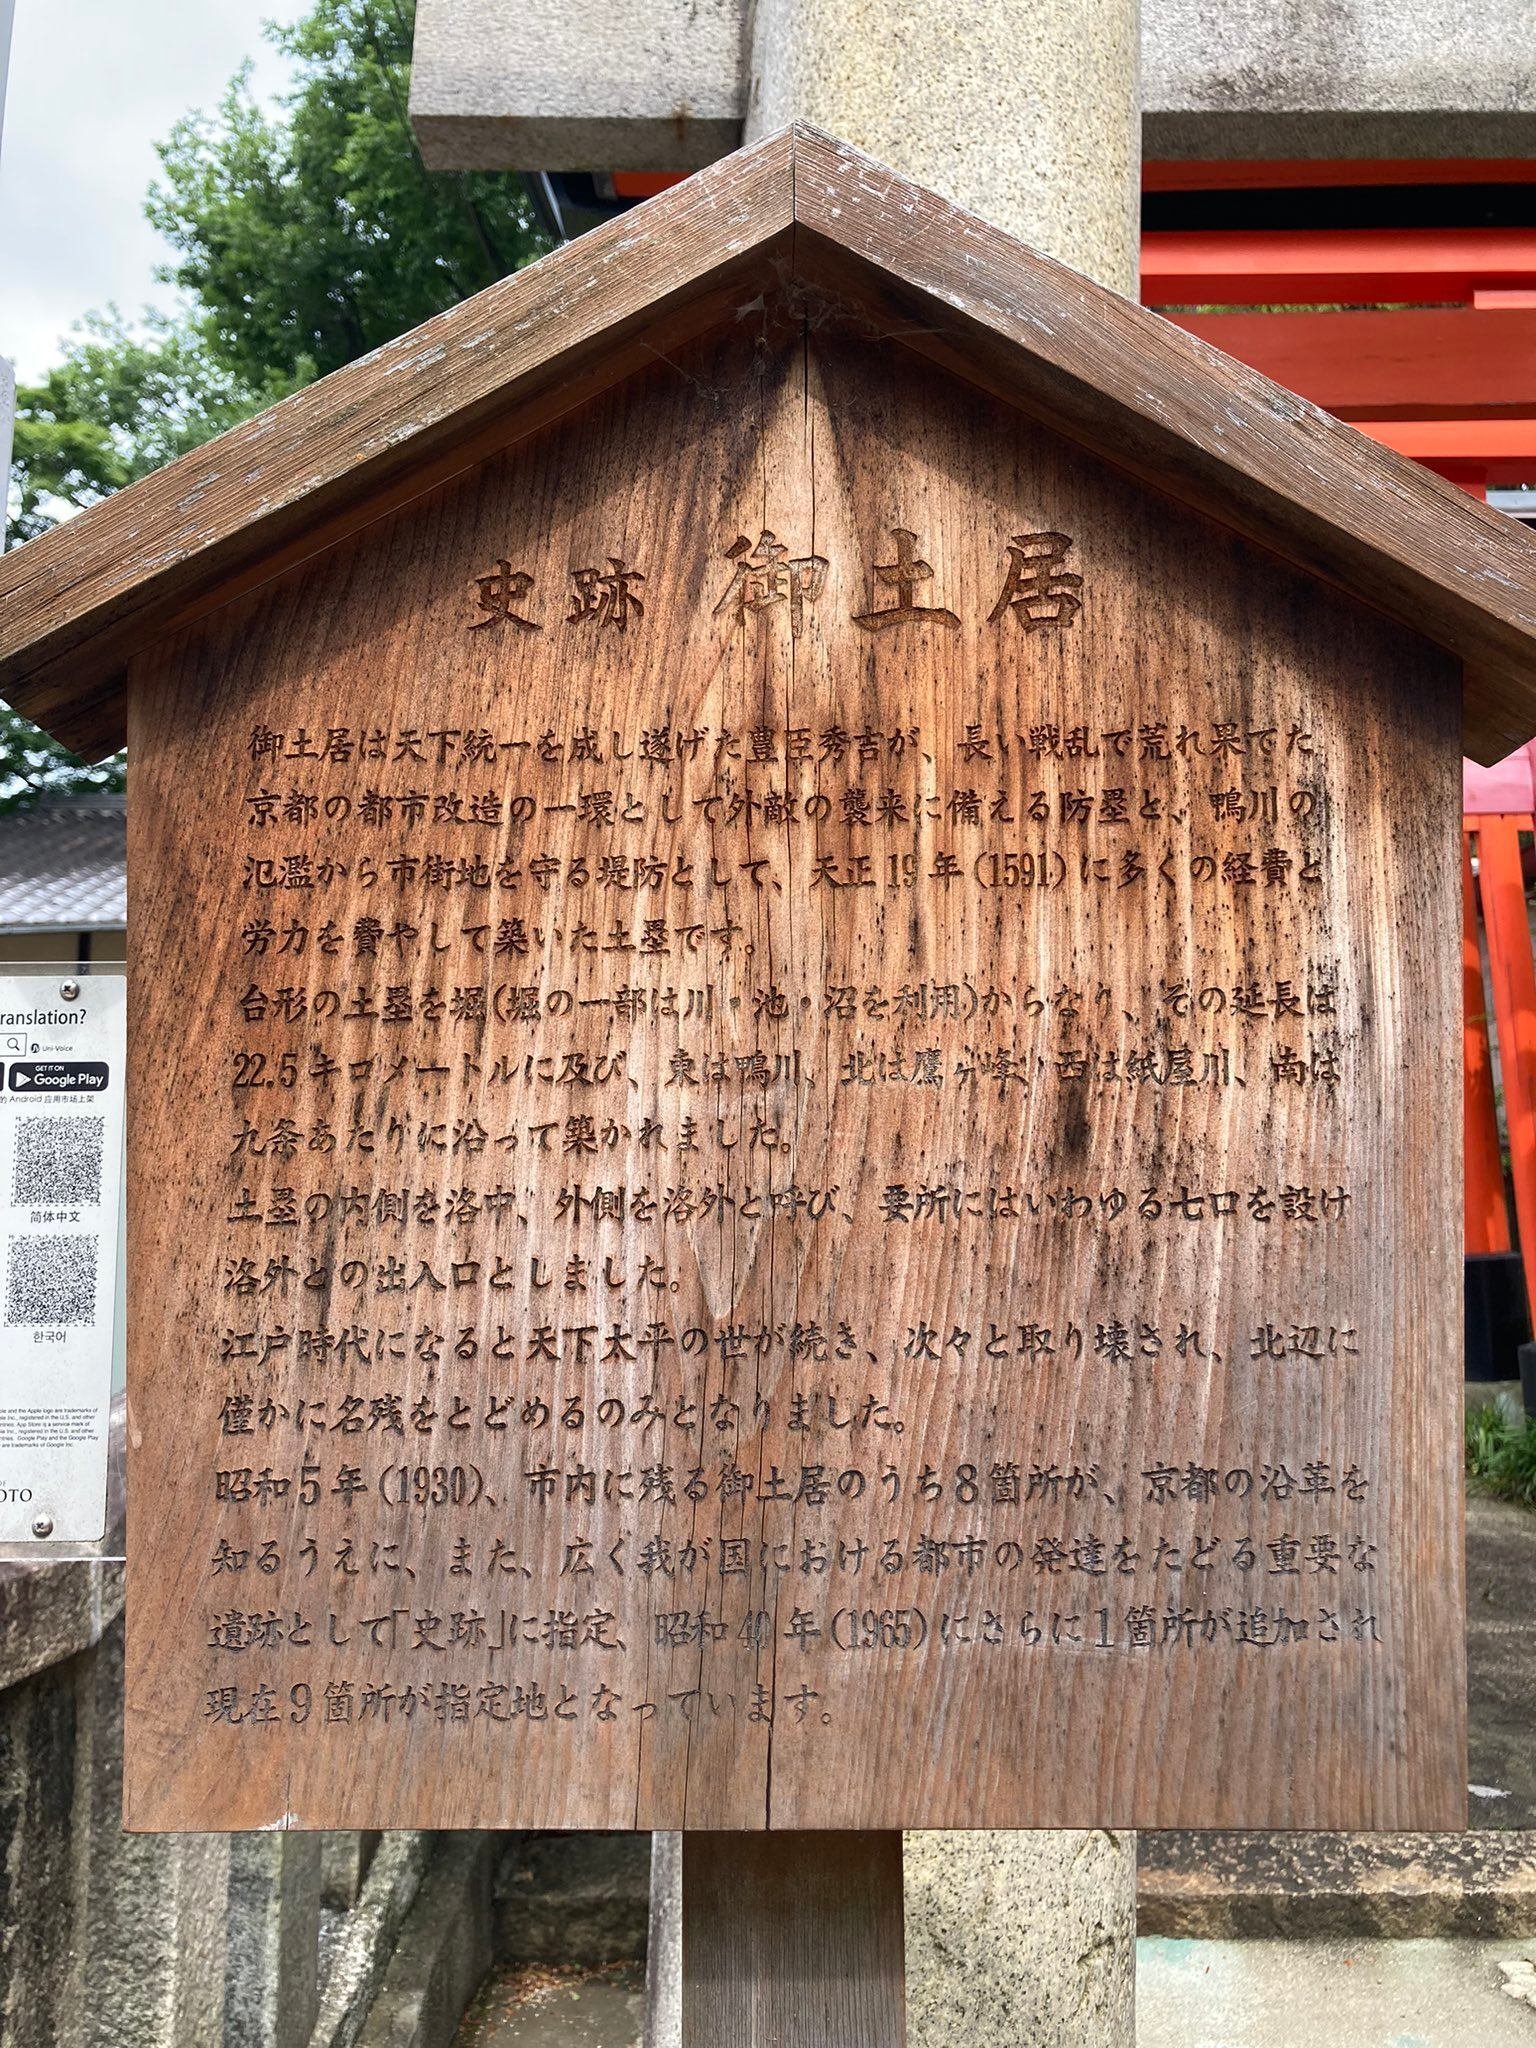 史跡 御土居
御土居は天下統一を成し遂げた豊臣秀吉が、長い戦乱で荒れ果てた
京都の都市改造の一環として外敵の襲来に備える防塁と、鴨川の
氾濫から市街地を守る堤防として、天正19年(1591)に多くの経費と
労力を費やして築いた土塁です。
台形の土塁を堀(堀の一部は川・池・沼を利用)からなり、その延長は
22.5キロメートルに及び、東は鴨川、北は鷹ヶ峰、西は紙屋川、南は
九条あたりに沿って築かれました。
土塁の内側を洛中、外側を洛外と呼び、要所にはいわゆる七口を設け
洛外との出入口としました。
江戸時代になると天下太平の世が続き、次々と取り壊され、北辺に
僅かに名残をとどめるのみとなりました。
昭和5年(1930)、市内に残る御土居のうち8箇所が、京都の沿革を
知るうえに、また、広く我が国における都市の発達をたどる重要な
遺跡として「史跡」に指定、昭和40年(1965)にさらに1箇所が追加され
現在9箇所が指定地となっています。
ranslation?
Uni-Voice
GET IT ON
Google Play
的 Android 应用市场上架
简体中文
한국어
ple and the Apple logo are trademarks of
le Inc., registered in the U.S. and other
ntries. App Store is a service mark of
le Inc., registered in the U.S. and other
ntries. Google Play and the Google Play
are trademarks of Google Inc.
OTO